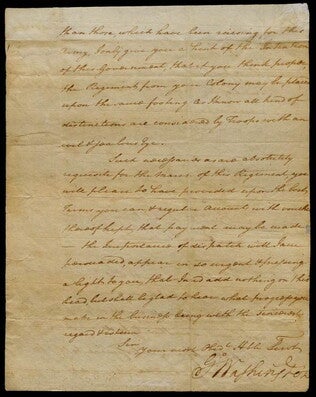 than those, which have been raising for this
Army. I only give you a hint of the Intention
of this Government, that if you think proper
the Regiment from your Colony may be placed
upon the same footing as I know all kind of
distinctions are considered by Troops with an
evil & jealous Eye.
Such necessaries as are absolutely
requisite for the March of this Regiment, you
will please to have provided upon the best
Terms you can & regular Account with vouchers
thereof kept that payment may be made
the Importance of dispatch will I am
persuaded, appear in so urgent & pressing
a light to you, that I need add nothing on this
head, but shall be glad to hear what progress you
make in the business being with the sincerest
regard & esteem
Sir
Your most Obed. Hble Servt
Go Washington